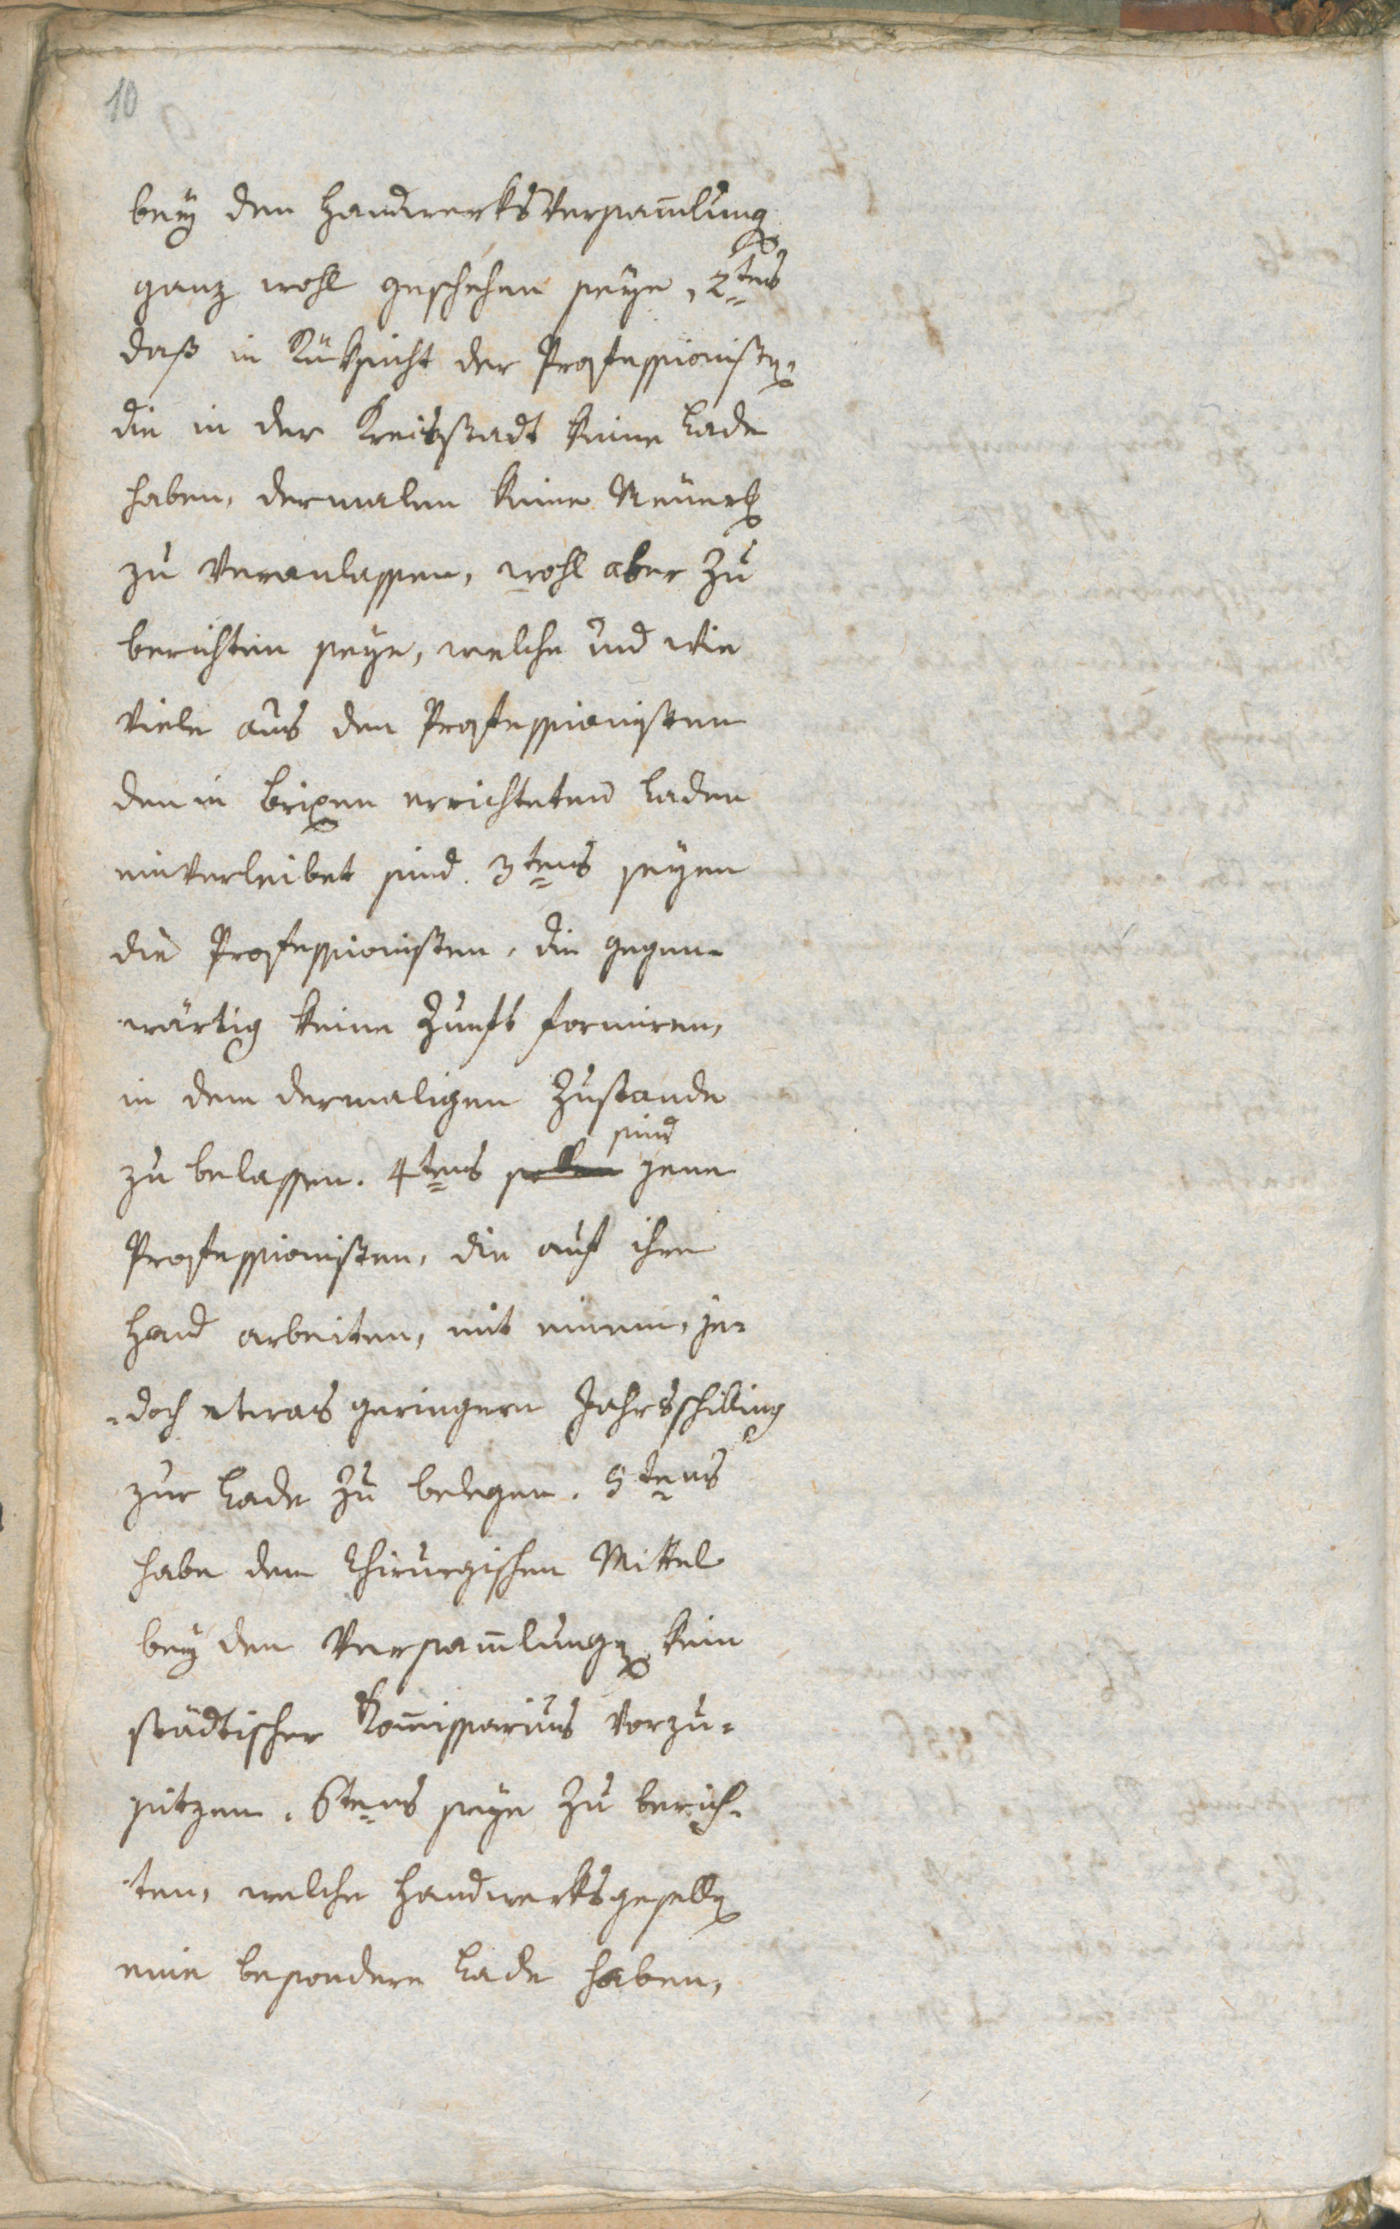 10
bey den Handwerksversam̅lungen
ganz wohl geschehen seye, 2tens
daß in Rüksicht der Professionisten,
die in der Kreisstadt keine Lade
haben, dermalen keine Neuerung
zu veranlassen, wohl aber zu
berichten seye, welche und wie
viele aus den Professionisten
den in Brixen errichteten Laden
einverleibet sind. 3tens seyen
die Professionisten, die gegen-
wärtig keine Zunft formiren,
in dem dermaligen Zustande
sind
zu belassen. 4tens sollen jene
Professionisten, die auf ihre
Hand arbeiten, mit einem, je-
-doch etwas geringern Jahrsschilling
zur Lade zu belegen. 5tens
habe dem Chirurgischen Mittel
bey den Versam̅lungen kein
städtischer Kom̅issarius vorzu-
sitzen. 6tens seye zu berich-
ten, welche Handwerksgesellen
eine besondere Lade haben,